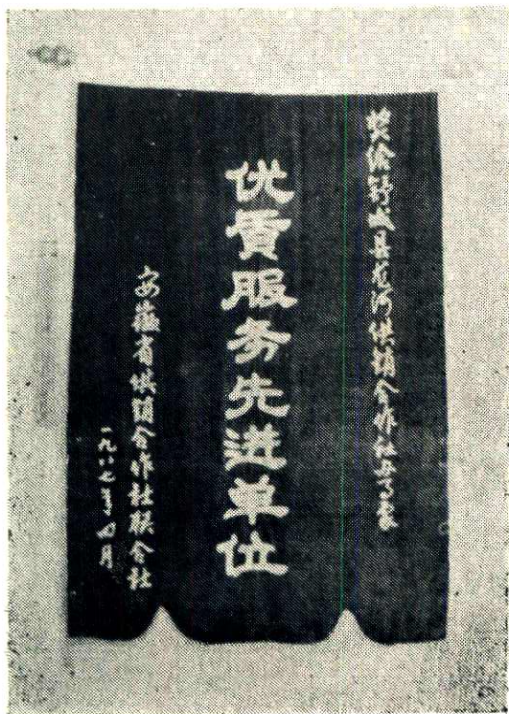 奖给舒城县龙河供销合作社
优质服务先进单位
安徽省供销合作社联合社
一九八七年四月